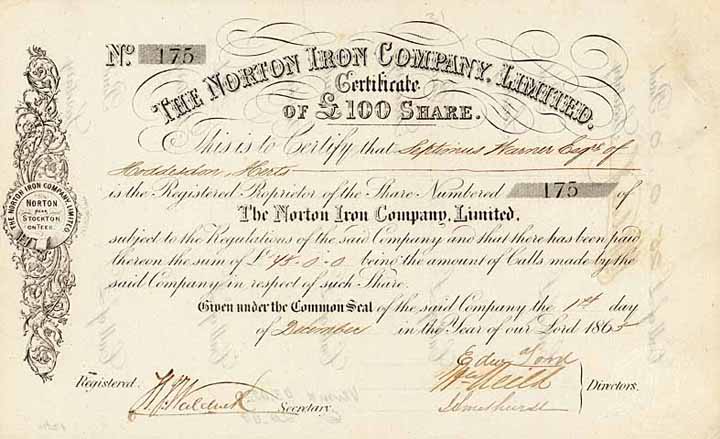 No. 175
THE NORTON IRON COMPANY, LIMITED.
Certificate
OF £100 SHARE.
This is to Certify that Septimus Warner Esqre of
Hoddesdon, Herts
is the Registered Proprietor of the Share Numbered 175 of
The Norton Iron Company, Limited,
subject to the Regulations of the said Company and that there has been paid
thereon the sum of £ 45-0-0 being the amount of Calls made by the
said Company in respect of such Share.
Given under the Common Seal of the said Company the 1st day
of December in the Year of our Lord 1865
THE NORTON IRON COMPANY LIMITED
NORTON
NEAR
STOCKTON
ON TEES
Registered.
Secretary.
Directors.